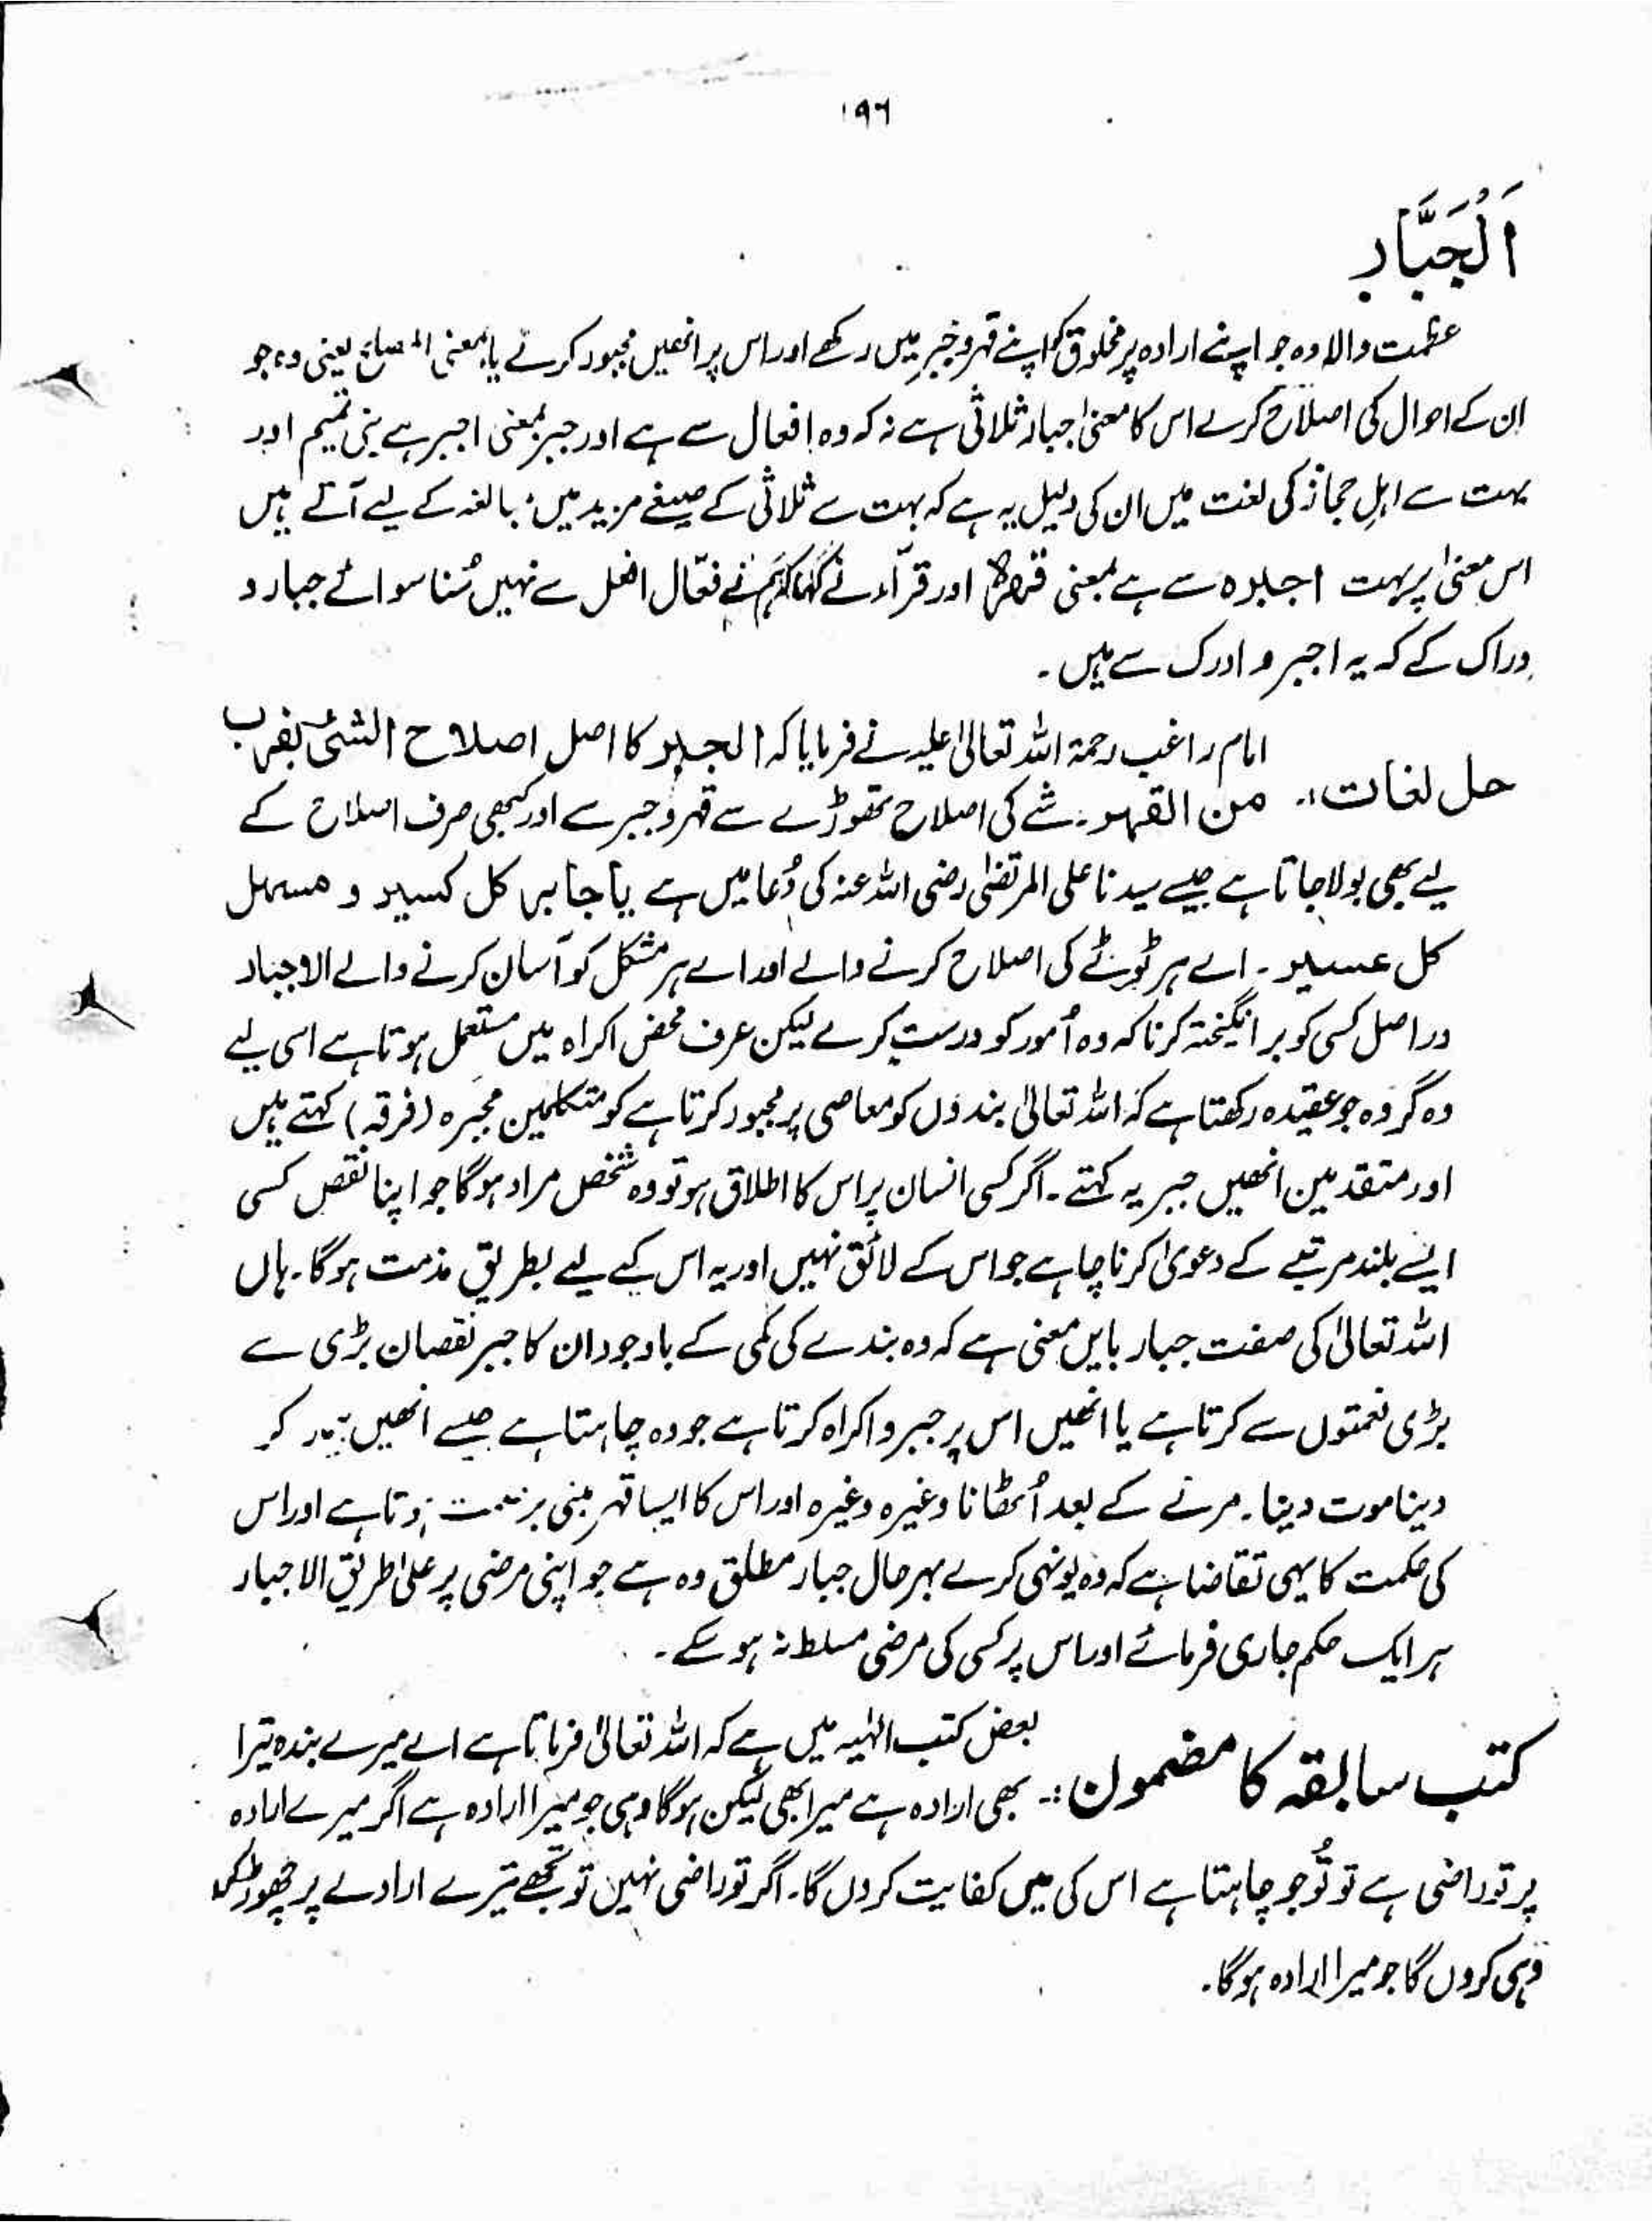 ۱۹۶
اَلْجَبَّار
عظمت والا وہ جو اپنے ارادہ پر مخلوق کو اپنے قہر و جبر میں رکھے اور اس پر انھیں مجبور کرنے یا بمعنی المصلح یعنی وہ جو
ان کے احوال کی اصلاح کرے اس کا معنیٰ اجبار ثلاثی ہے نہ کہ وہ افعال سے ہے اور جبر بمعنی اجبر ہے بنی تمیم اور
بہت سے اہلِ حجاز کی لغت میں ان کی دلیل یہ ہے کہ بہت سے ثلاثی کے صیغے مزید میں مبالغہ کے لیے آتے ہیں
اس معنیٰ پر بہت اجبرہ سے ہے بمعنی اور فرّاء نے کہا کہ نے فعّال افعل سے نہیں سُنا سوائے جبار و
دراک کے کہ یہ اجبر و ادرک سے ہیں۔
حل لغات :۔ امام راغب رحمۃ اللہ تعالیٰ علیہ نے فرمایا کہ الجبر کا اصل اصلاح الشئ بضرب
من القہر۔ شے کی اصلاح تھوڑے سے قہر و جبر سے اور کبھی صرف اصلاح کے
لیے بھی بولا جاتا ہے جیسے سیدنا علی المرتضیٰ رضی اللہ عنہ کی دُعا میں ہے یا جابر کل کسیر و مسہل
کل عسیر۔ اے ہر ٹوٹے کی اصلاح کرنے والے اور اے ہر مشکل کو آسان کرنے والے الاجبار
در اصل کسی کو برانگیختہ کرنا کہ وہ اُمور کو درست کرے لیکن عرف محض اکراہ میں مستعمل ہوتا ہے اسی لیے
وہ گروہ جو عقیدہ رکھتا ہے کہ اللہ تعالیٰ بندوں کو معاصی پر مجبور کرتا ہے کو متکلمین مجبرہ (فرقہ) کہتے ہیں
اور متقدمین انھیں جبریہ کہتے۔ اگر کسی انسان پر اس کا اطلاق ہو تو وہ شخص مراد ہوگا جو اپنا نقص کسی
ایسے بلند مرتبے کے دعویٰ کرنا چاہے جو اس کے لائق نہیں اور یہ اس کے لیے بطریق مذمت ہوگا۔ ہاں
اللہ تعالیٰ کی صفت جبار بایں معنی ہے کہ وہ بندے کی کمی کے باوجود ان کا جبر نقصان بڑی سے
بڑی نعمتوں سے کرتا ہے یا انھیں اس پر جبر و اکراہ کرتا ہے جو وہ چاہتا ہے جیسے انھیں کر
دینا موت دینا۔ مرنے کے بعد اُٹھانا وغیرہ وغیرہ اور اس کا ایسا قہر مبنی بر حکمت ہوتا ہے اور اس
کی حکمت کا یہی تقاضا ہے کہ وہ یونہی کرے بہر حال جبار مطلق وہ ہے جو اپنی مرضی پر علیٰ طریق الاجبار
ہر ایک حکم جاری فرمائے اور اس پر کسی کی مرضی مسلط نہ ہو سکے۔
کتب سابقہ کا مضمون :۔ بعض کتب الہٰیہ میں ہے کہ اللہ تعالیٰ فرماتا ہے اے میرے بندہ تیرا
بھی ارادہ ہے میرا بھی لیکن ہوگا وہی جو میرا ارادہ ہے اگر میرے ارادہ
پر تو راضی ہے تو تُو جو چاہتا ہے اس کی میں کفایت کروں گا۔ اگر تو راضی نہیں تو تجھے تیرے ارادے پر چھوڑ کر
وہی کروں گا جو میرا ارادہ ہوگا۔